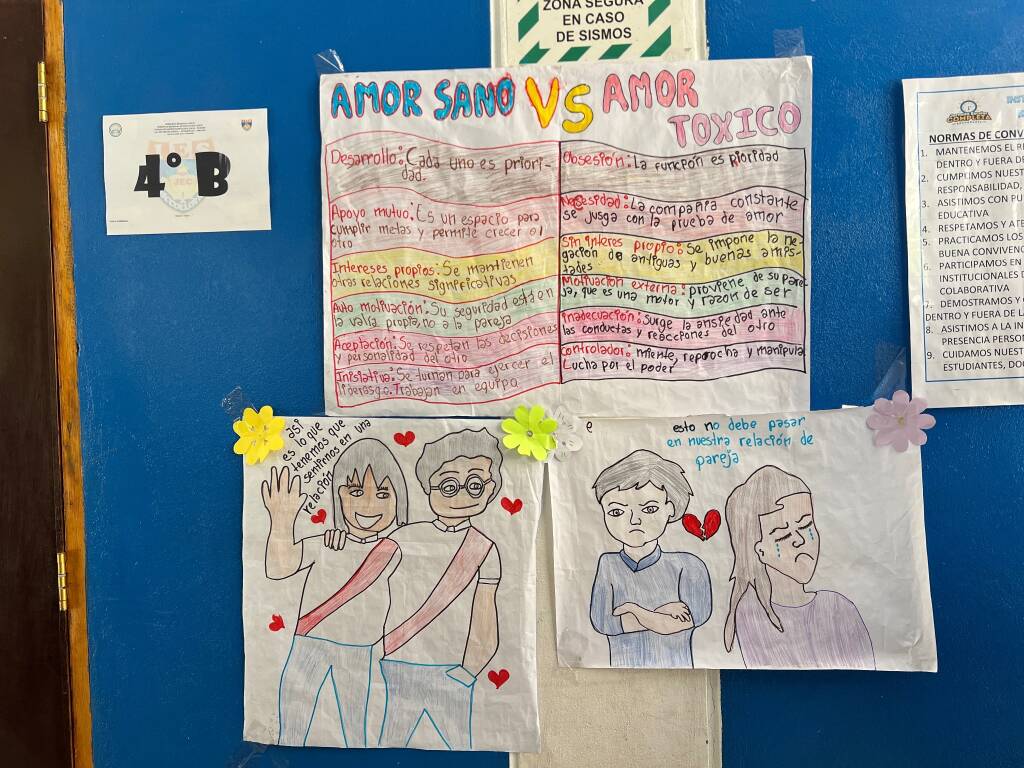 ZONA SEGURA
EN CASO
DE SISMOS
4° B
JEC
AMOR SANO VS AMOR
TOXICO
Desarrollo: Cada uno es priori-
dad.
Apoyo mutuo: Es un espacio para
cumplir metas y permite crecer al
otro
Intereses propios: Se mantienen
otras relaciones significativas
Auto motivación: Su seguridad está en
la valía propia, no a la pareja
Aceptación: Se respetan las decisiones
y personalidad del otro
Inisiativa: Se turnan para ejercer el
liderasgo. Trabajan en equipo
Obsesión: La función es prioridad
Nesesidad: La compañia constante
se jusga con la prueba de amor
Sin interes propio: Se impone la ne-
gación de antiguas y buenas amis-
tades
Motivación externa: proviene de su pare-
ja, que es una motor y razon de ser
inadecuación: Surge la ansiedad ante
las conductas y reacciones del otro
controlador: miente, reprocha y manipula
Lucha por el poder
asi
es lo que
tenemos que
sentirnos en una
relación
e
esto no debe pasar
en nuestra relación de
pareja
COMPLETA
NORMAS DE CONV
1. MANTENEMOS EL RE
DENTRO Y FUERA DE
2. CUMPLIMOS NUEST
RESPONSABILIDAD,
3. ASISTIMOS CON PU
EDUCATIVA
4. RESPETAMOS Y ATE
5. PRACTICAMOS LOS
BUENA CONVIVENC
6. PARTICIPAMOS EN
INSTITUCIONALES D
COLABORATIVA
7. DEMOSTRAMOS Y
DENTRO Y FUERA DE LA
8. ASISTIMOS A LA IN
PRESENCIA PERSON
9. CUIDAMOS NUEST
ESTUDIANTES, DOC